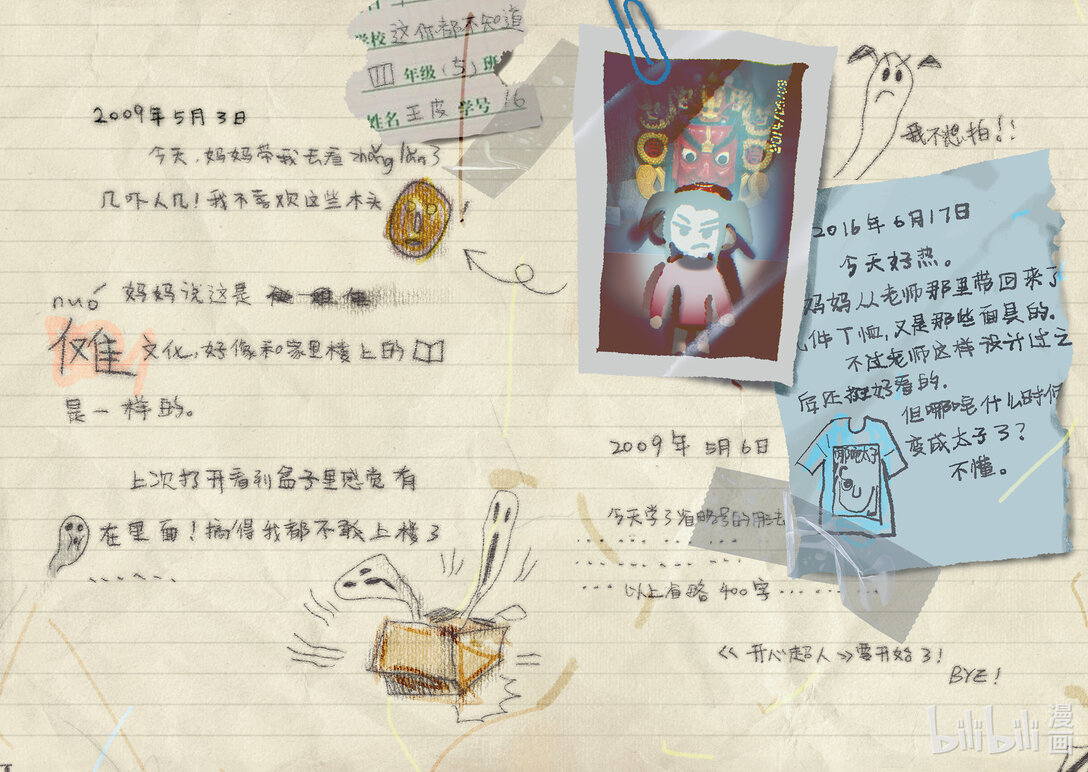 学校 这你都不知道
III 年级(5)班
姓名 王皮 学号 16
2009年5月3日
今天,妈妈带我去看zhǎng lǎn了
几吓人几!我不喜欢这些木头
nuó 妈妈说这是
傩 文化,好像和家里楼上的
是一样的。
上次打开看到盒子里感觉有
在里面!搞得我都不敢上楼了
......
我不想拍!!
2016年6月17日
今天好热。
妈妈从老师那里带回来了
几件T恤,又是那些面具的.
不过老师这样设计过之
后还挺好看的.
但哪吒什么时候
变成太子了?
不懂。
哪吒太子
2009年5月6日
今天学了省略号的用法
......
......
......以上省略400字......
《开心超人》要开始了!
BYE!
bilibili 漫画